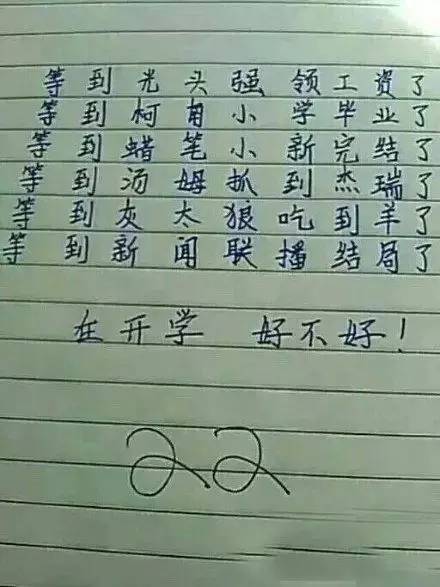 等到光头强领工资了
等到柯南小学毕业了
等到蜡笔小新完结了
等到汤姆抓到杰瑞了
等到灰太狼吃到羊了
等到新闻联播结局了
在开学 好不好!
22